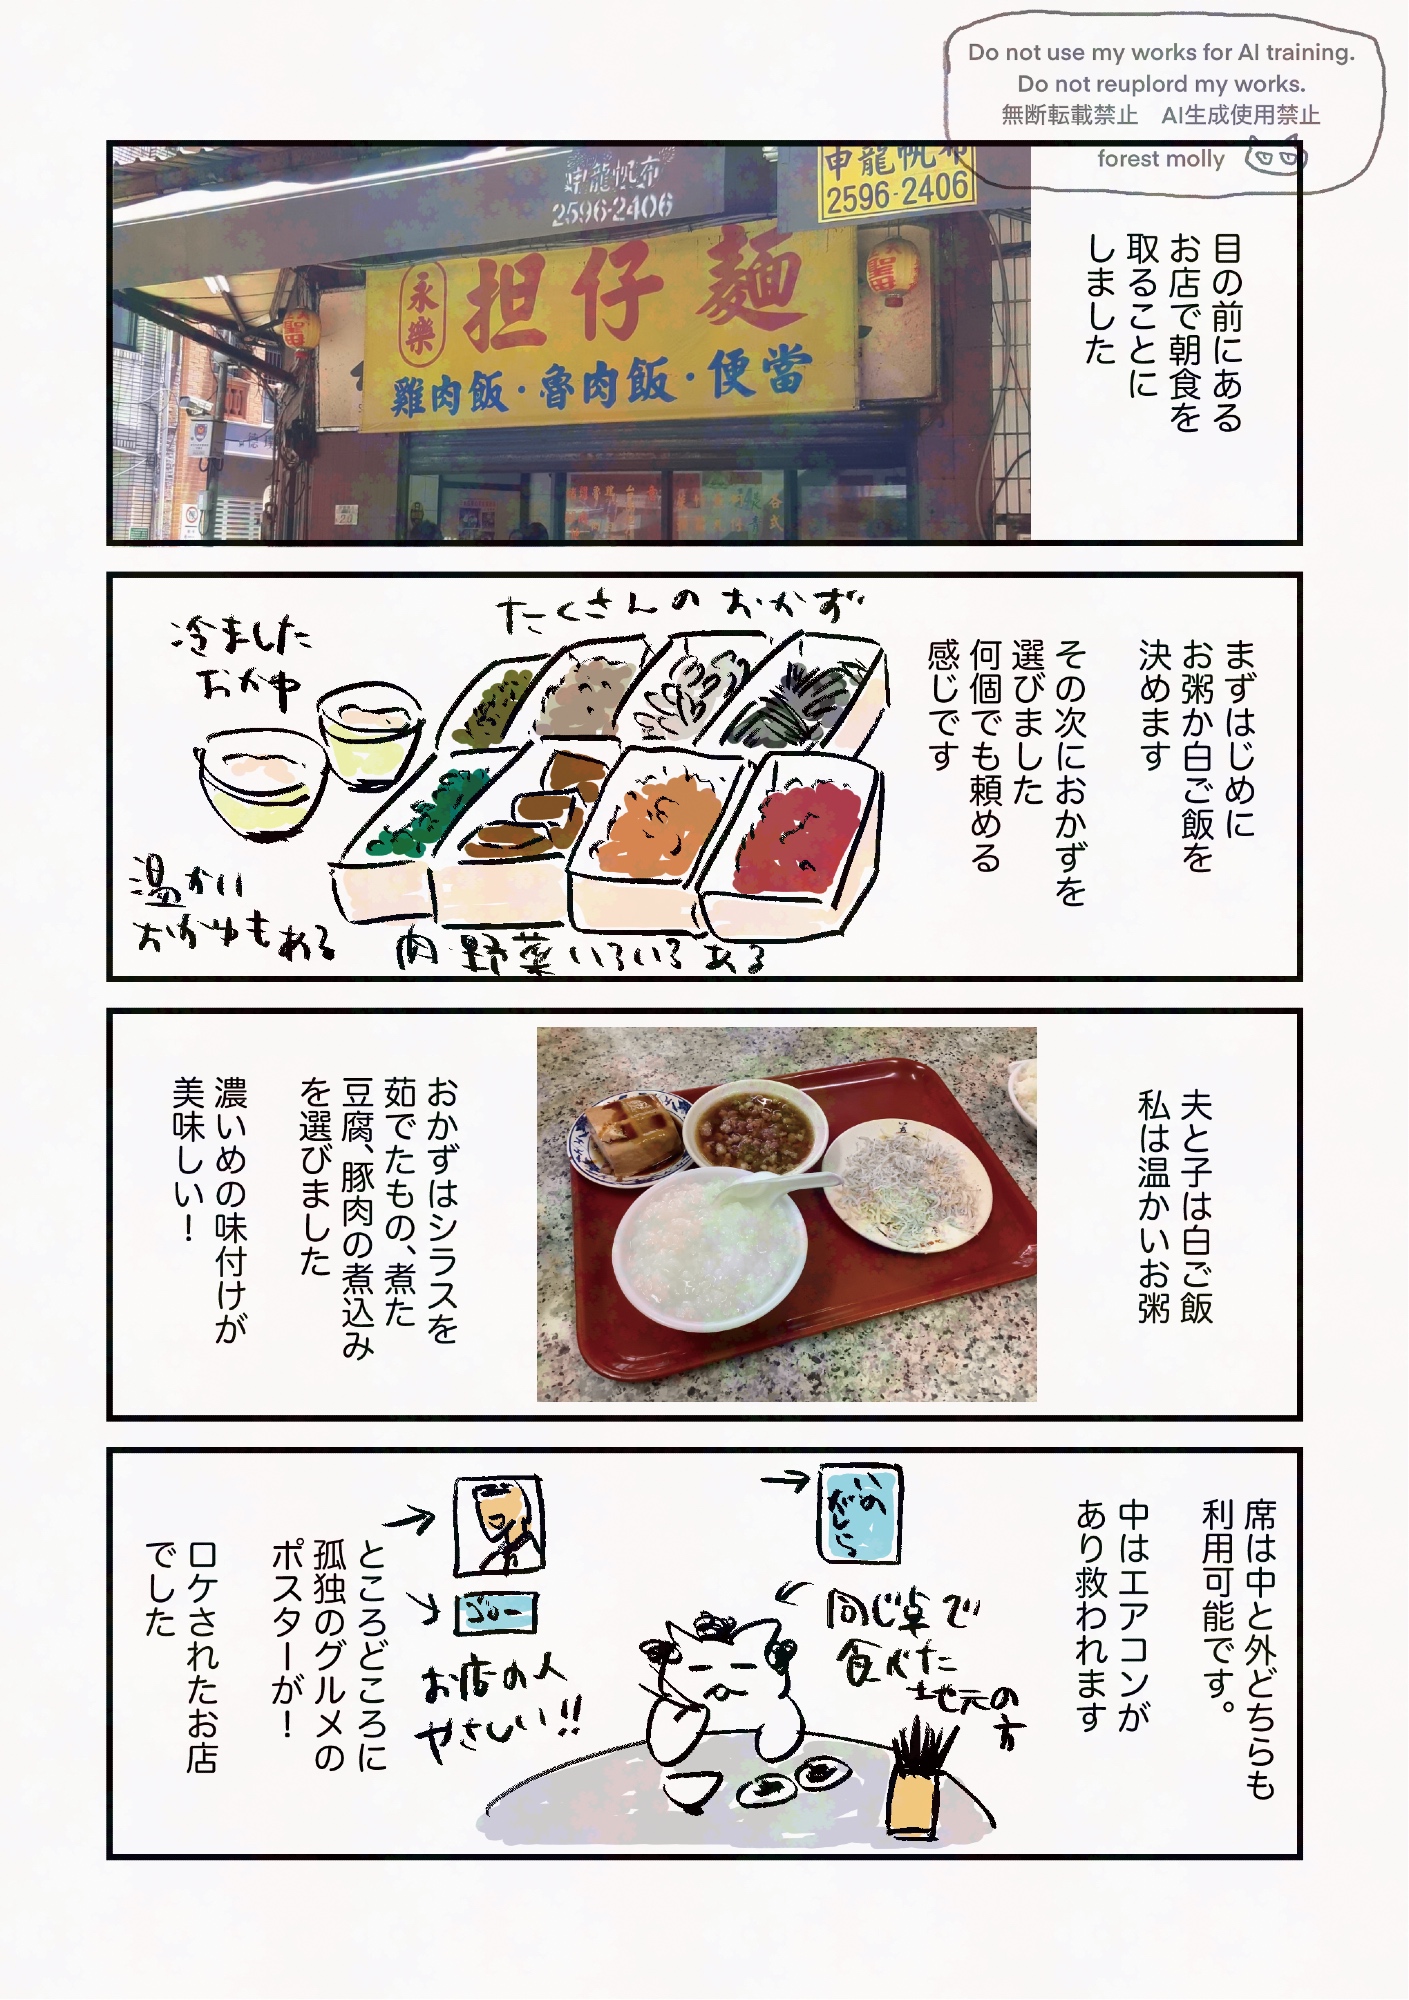 Do not use my works for AI training.
Do not reuplord my works.
無断転載禁止　AI生成使用禁止
forest molly
目の前にある
お店で朝食を
取ることに
しました
申龍帆布
2596-2406
申龍帆布
2596-2406
永樂
担仔麵
雞肉飯·魯肉飯·便當
聖母
聖母
まずはじめに
お粥か白ご飯を
決めます
その次におかずを
選びました
何個でも頼める
感じです
たくさんのおかず
冷ました
おかゆ
温かい
おかゆもある
肉野菜いろいろある
夫と子は白ご飯
私は温かいお粥
おかずはシラスを
茹でたもの、煮た
豆腐、豚肉の煮込み
を選びました
濃いめの味付けが
美味しい！
席は中と外どちらも
利用可能です。
中はエアコンが
あり救われます
いの
がしら
同じ卓で
食べた
地元の
方
ゴロー
お店の人
やさしい!!
ところどころに
孤独のグルメの
ポスターが！
ロケされたお店
でした